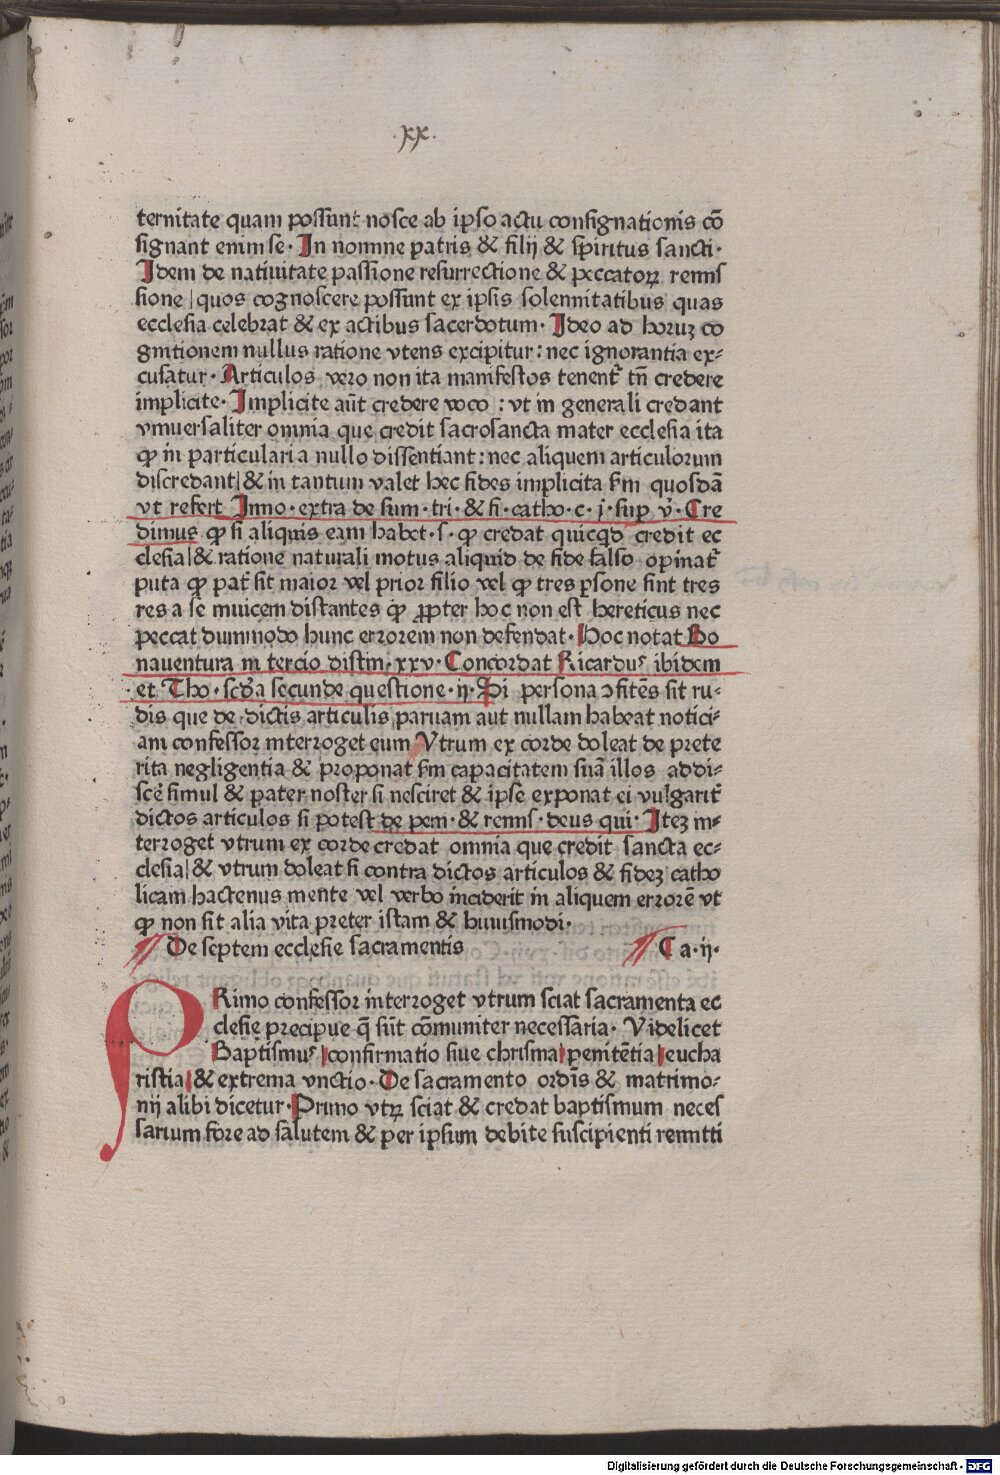 .xx.
ternitate quam possunt nosce ab ipso actu consignationis cō
signant enim se. In nomine patris & filij & spiritus sancti.
Idem de natiuitate passione resurrectione & peccatoꝝ remis
sione | quos cognoscere possunt ex ipsis solennitatibus quas
ecclesia celebrat & ex actibus sacerdotum. Ideo ad horuꝫ co
gnitionem nullus ratione vtens excipitur: nec ignorantia ex⸗
cusatur. Articulos vero non ita manifestos tenent᷑ tn̄ credere
implicite. Implicite aūt credere voco : vt in generali credant
vniuersaliter omnia que credit sacrosancta mater ecclesia ita
ꝙ in particulari a nullo dissentiant: nec aliquem articulorum
discredant| & in tantum valet hec fides implicita sm̄ quosdā
vt refert Inno. extra de sum. tri. & fi. catho. c. j. sup v̇. Cre
dimus ꝙ si aliquis eam habet. s. ꝙ credat quicqd credit ec
clesia| & ratione naturali motus aliquid de fide falso opinat᷑
puta ꝙ pat᷑ sit maior vel prior filio vel ꝙ tres ꝑsone sint tres
res a se inuicem distantes ꝙ ꝓpter hoc non est hereticus nec
peccat dummodo hunc errorem non defendat. Hoc notat Bo
nauentura in tercio distin. xxv. Concordat Ricarduꝰ ibidem
et Tho. scd̄a secunde questione. ij. Si persona ↄfitēs sit ru⸗
dis que de dictis articulis paruam aut nullam habeat notici⸗
am confessor interroget eum Vtrum ex corde doleat de prete
rita negligentia & proponat sm̄ capacitatem suā illos addi⸗
scē simul & pater noster si nesciret & ipse exponat ei vulgarit᷑
dictos articulos si potest de peni. & remis. deus qui. Iteꝫ in⸗
terroget vtrum ex corde credat omnia que credit sancta ec⸗
clesia| & vtrum doleat si contra dictos articulos & fideꝫ catho
licam hactenus mente vel verbo inciderit in aliquem errorē vt
ꝙ non sit alia vita preter istam & huiusmodi.
De septem ecclesie sacramentis Ca. ij.
PRimo confessor interroget vtrum sciat sacramenta ec
clesie precipue q̄ sūt cōmuniter necessaria. Videlicet
Baptismuꝰ | confirmatio siue chrisma| penitētia| eucha
ristia| & extrema vnctio. De sacramento ordis & matrimo⸗
nij alibi dicetur. Primo vtꝝ sciat & credat baptismum neces
sarium fore ad salutem & per ipsum debite suscipienti remitti
Digitalisierung gefördert durch die Deutsche Forschungsgemeinschaft - DFG